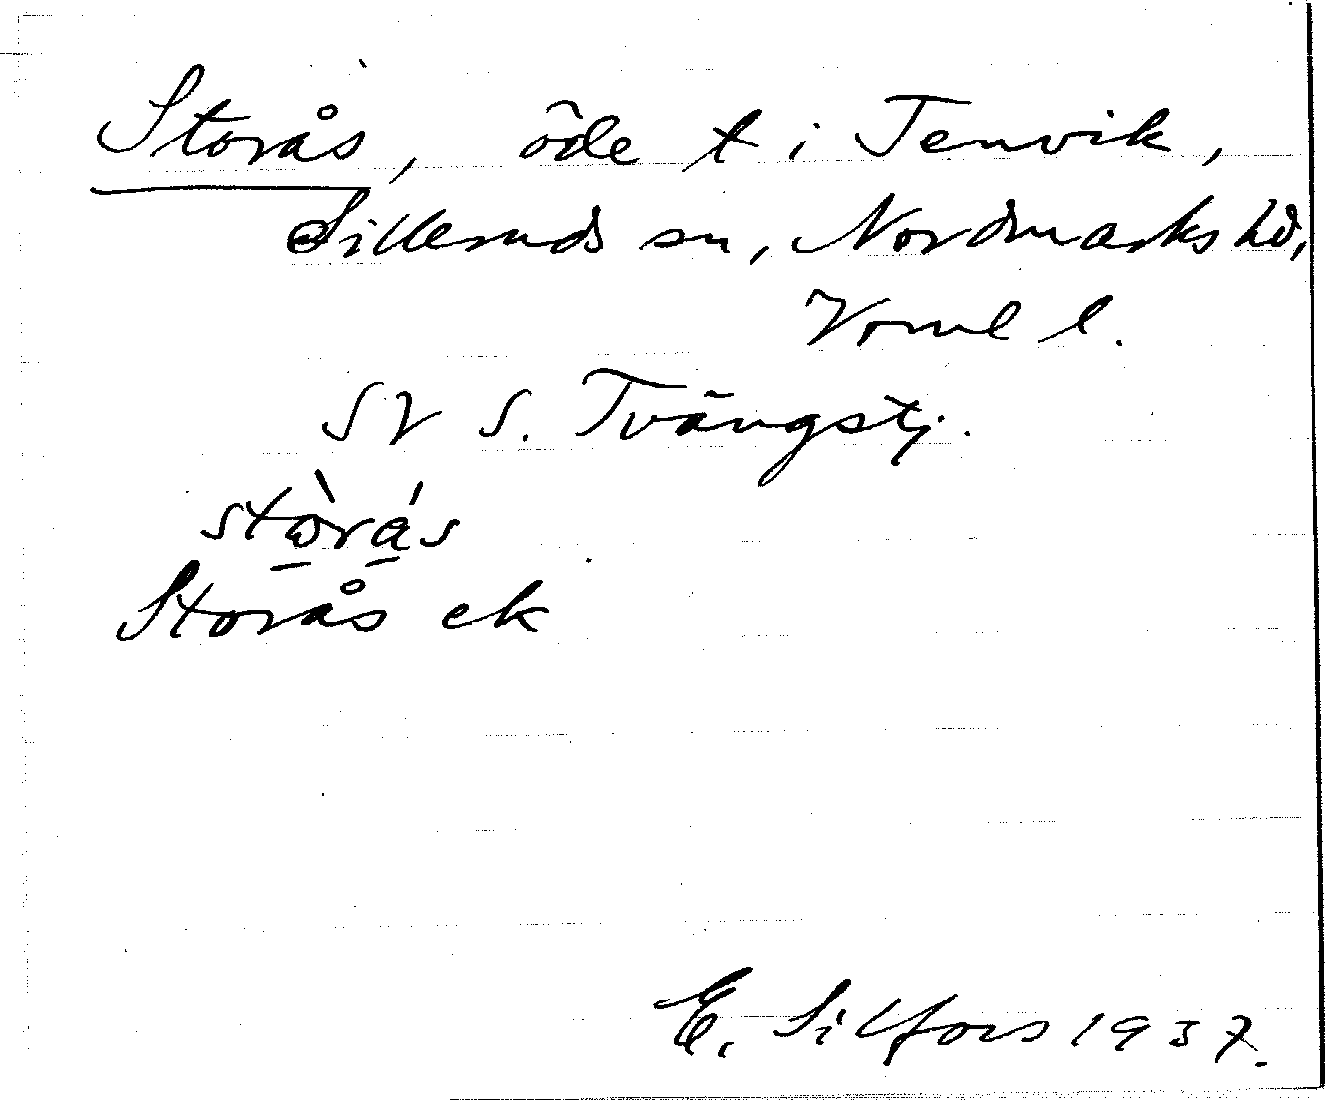 Storås, öde t i Tenvik,
Silleruds sn, Nordmarks hd,
Vrml l.
SV S. Tvängstj.
stòrás
Storås ek
E. Silfors 1937.